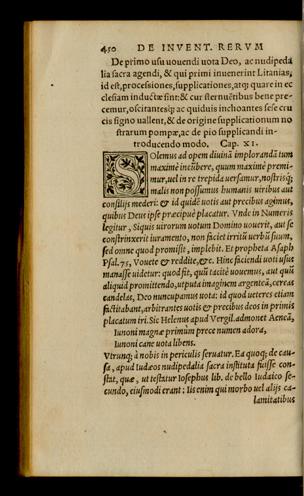 450 DE INVENT. RERVM
De primo usu uovendi uota Deo, ac nudipeda
lia sacra agendi, & qui primi inuenerint Litanias,
id est, processiones, supplicationes, atq; quare in ec
clesiam inductæ sint: & cur sternuẽtibus bene pre-
cemur, oscitantesq; ac quiduis inchoantes sese cru
cis signo uallent, & de origine supplicationum no
strarum pompæ, ac de pio supplicandi in-
troducendo modo. Cap. XI.
SOlemus ad opem diuinã implorandã tum
maxime incũbere, quum maximè premi-
mur, uel in re trepida uersamur, nostrisq;
malis non possumus humanis uiribus aut
consilijs mederi: & id quidẽ uotis aut precibus agimus,
quibus Deus ipse præcipuè placatur. Vnde in Numeris
legitur, Siquis uirorum uotum Domino uouerit, aut se
constrinxerit iuramento, non faciet irritũ uerbũ suum,
sed omne quod promisit, implebit. Et propheta Asaph
Psal. 75, Vouete & reddite, &c. Hinc faciendi uoti usus
manasse uidetur: quod fit, quũ tacitè uouemus, aut quũ
aliquid promittendo, utputa imaginem argenteã, cereas
candelas, Deo nuncupamus uota: id quod ueteres etiam
factitabant, arbitrantes uotis & precibus deos in primis
placatum iri. Sic Helenus apud Vergil. admonet Aeneã,
Iunoni magnæ primùm prece numen adora,
Iunoni cane uota libens.
Vtrunq; à nobis in periculis seruatur. Ea quoq; de cau-
sa, apud Iudæos nudipedalia sacra instituta fuisse con-
stat, quæ, ut testatur Iosephus lib. de bello Iudaico se-
cundo, eiusmodi erant: Iis enim qui morbo uel alijs ca-
lamitatibus